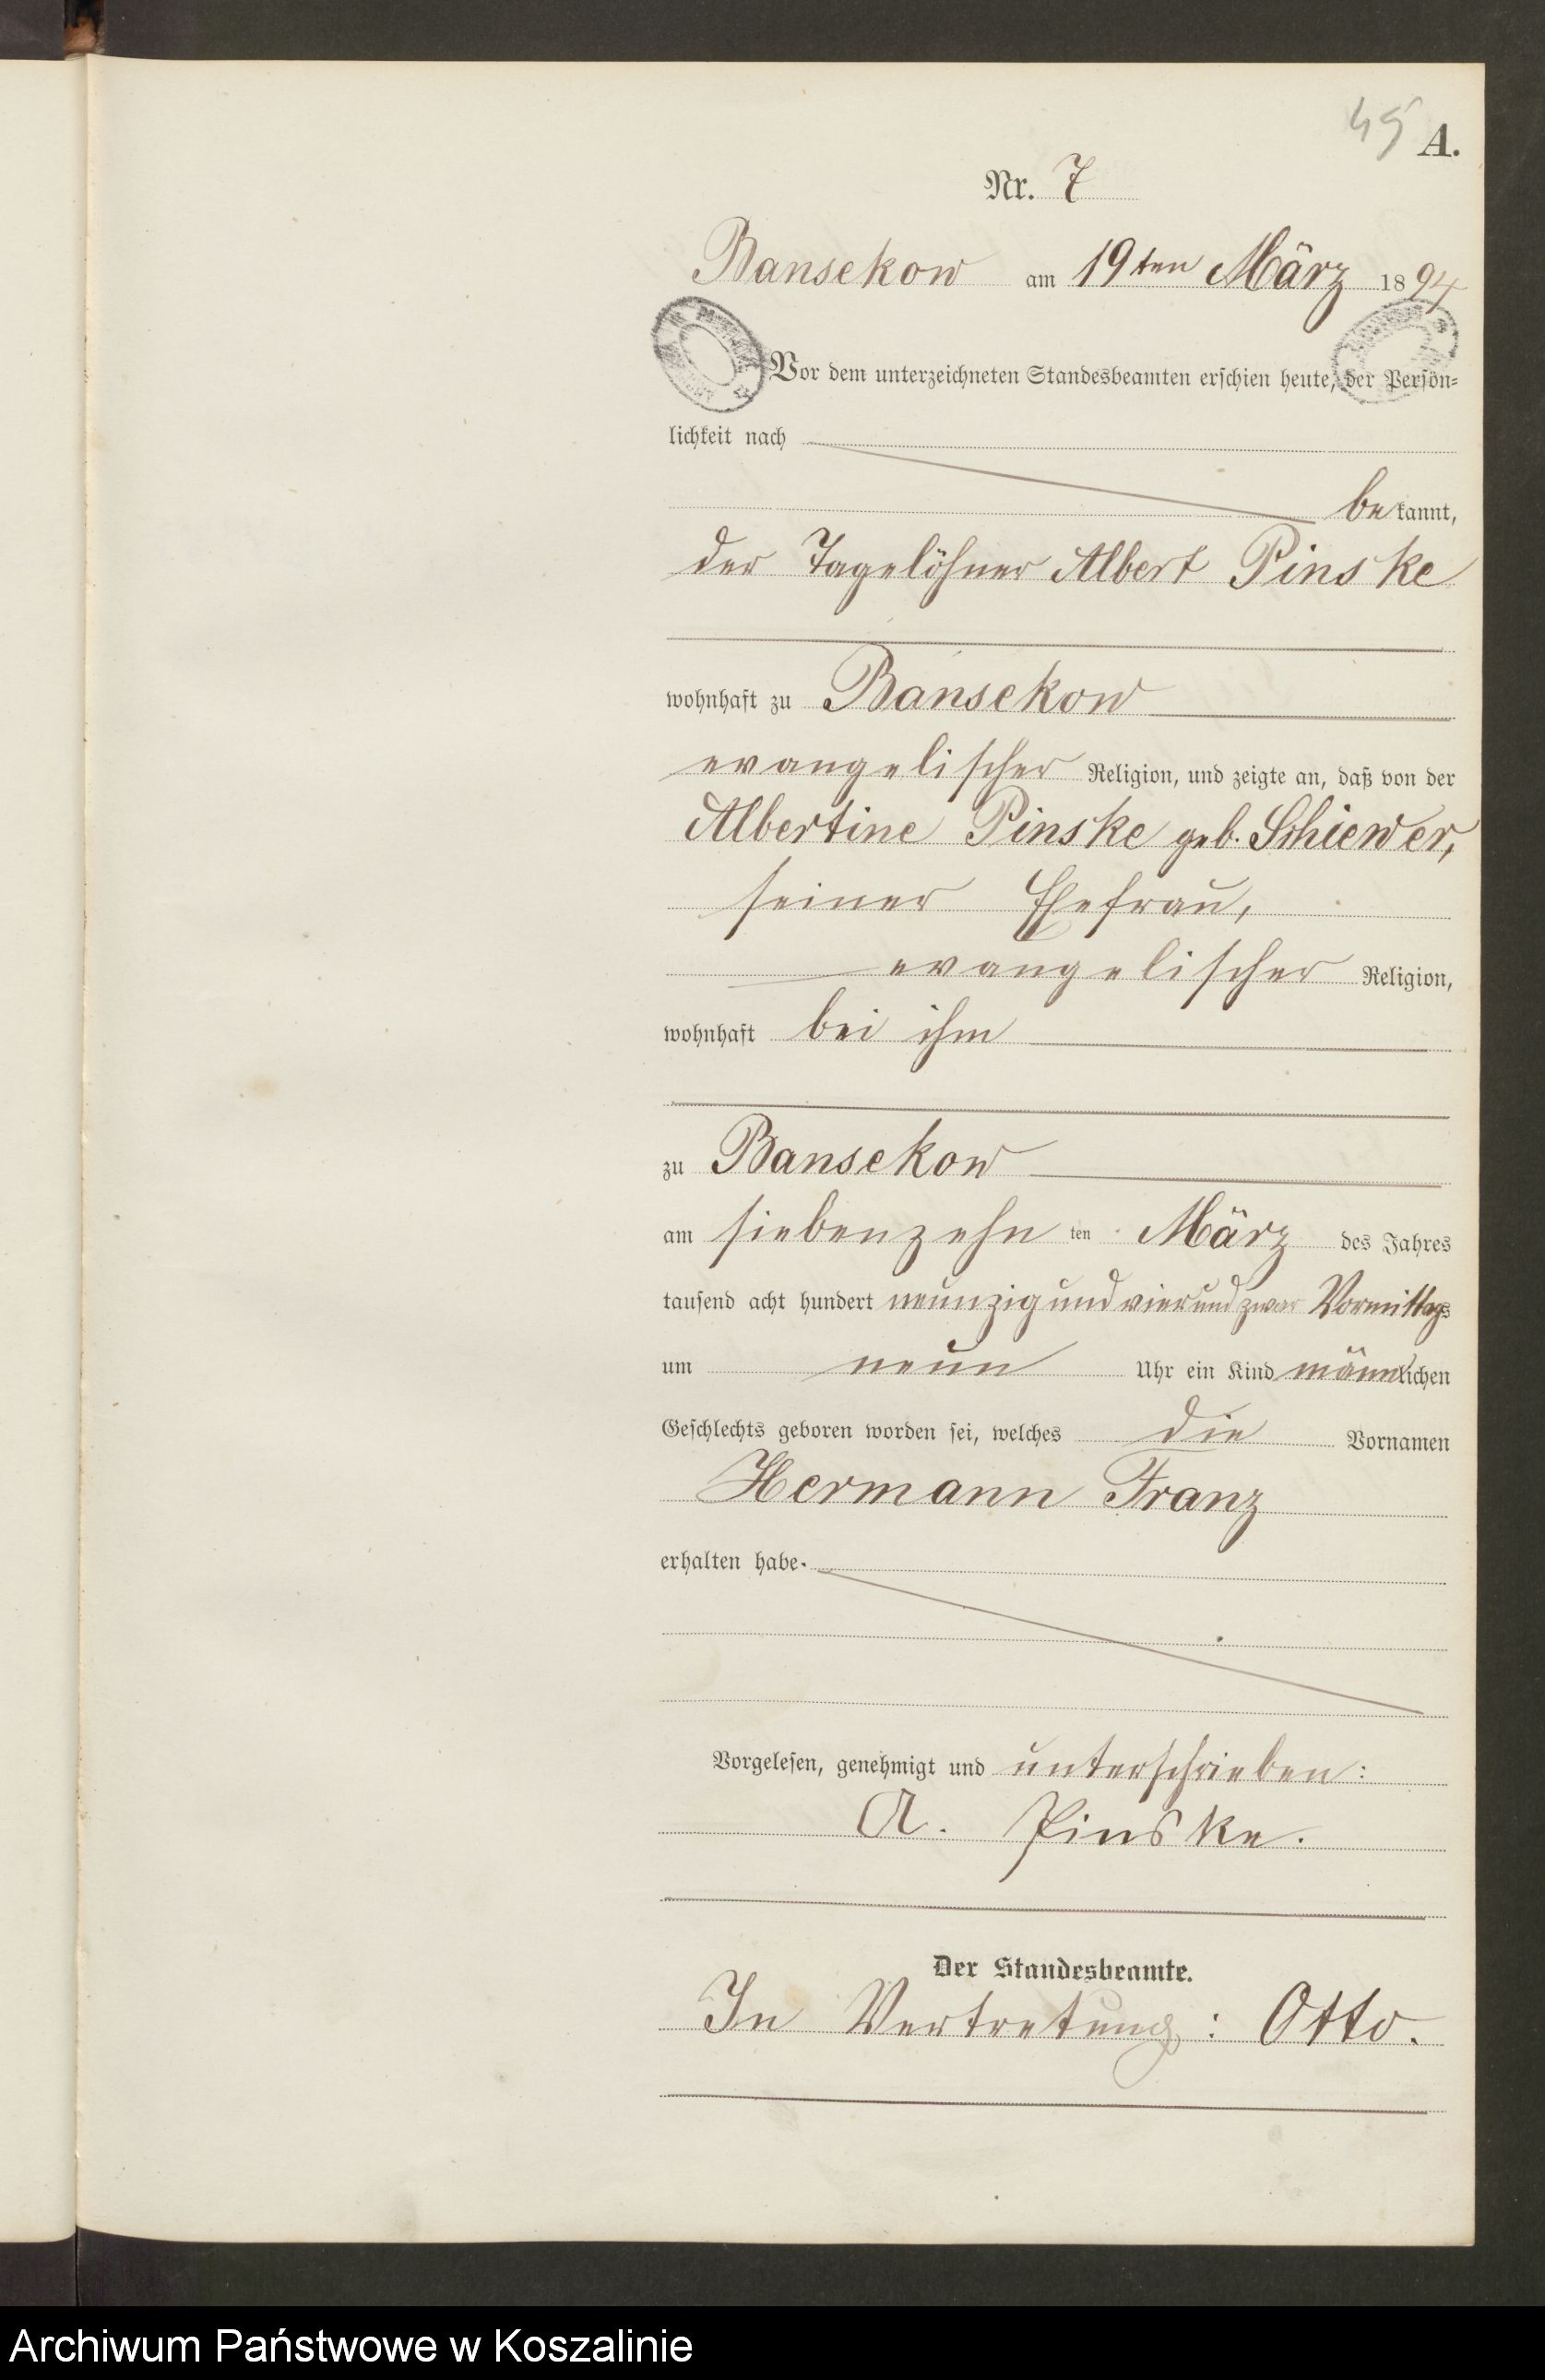 45 A.
Nr. 7
Bansekow am 19ten März 1894
Vor dem unterzeichneten Standesbeamten erschien heute, der Persön-
lichkeit nach
bekannt,
der Tagelöhner Albert Pinske
wohnhaft zu Bansekow
evangelischer Religion, und zeigte an, daß von der
Albertine Pinske geb. Schiewer,
seiner Ehefrau,
evangelischer Religion,
wohnhaft bei ihm
zu Bansekow
am siebenzehn ten März des Jahres
tausend acht hundert neunzig und vier und zwar Vormittags
um neun Uhr ein Kind männlichen
Geschlechts geboren worden sei, welches die Vornamen
Hermann Franz
erhalten habe.
Vorgelesen, genehmigt und unterschrieben:
A. Pinske.
Der Standesbeamte.
In Vertretung: Otto.
Archiwum Państwowe w Koszalinie